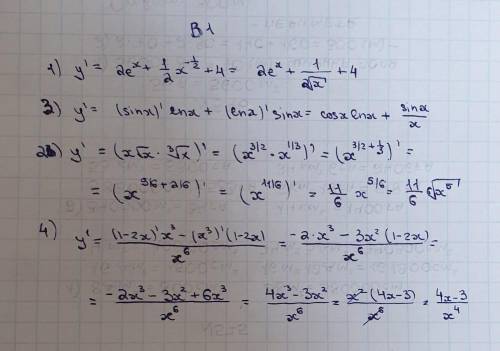 В1
1) y' = 2eˣ + 1/2 x^(-1/2) + 4 = 2eˣ + 1/(2√x) + 4
3) y' = (sinx)' lnx + (lnx)' sinx = cosx lnx + sinx/x
2) y' = (x√x · ³√x)' = (x^(3/2) · x^(1/3))' = (x^(3/2 + 1/3))' =
= (x^(9/6 + 2/6))' = (x^(11/6))' = 11/6 x^(5/6) = 11/6 ⁶√x⁵
4) y' = ((1-2x)' x³ - (x³)' (1-2x))/x⁶ = (-2·x³ - 3x² (1-2x))/x⁶ =
= (-2x³ - 3x² + 6x³)/x⁶ = (4x³ - 3x²)/x⁶ = x² (4x-3)/x⁶ = (4x-3)/x⁴